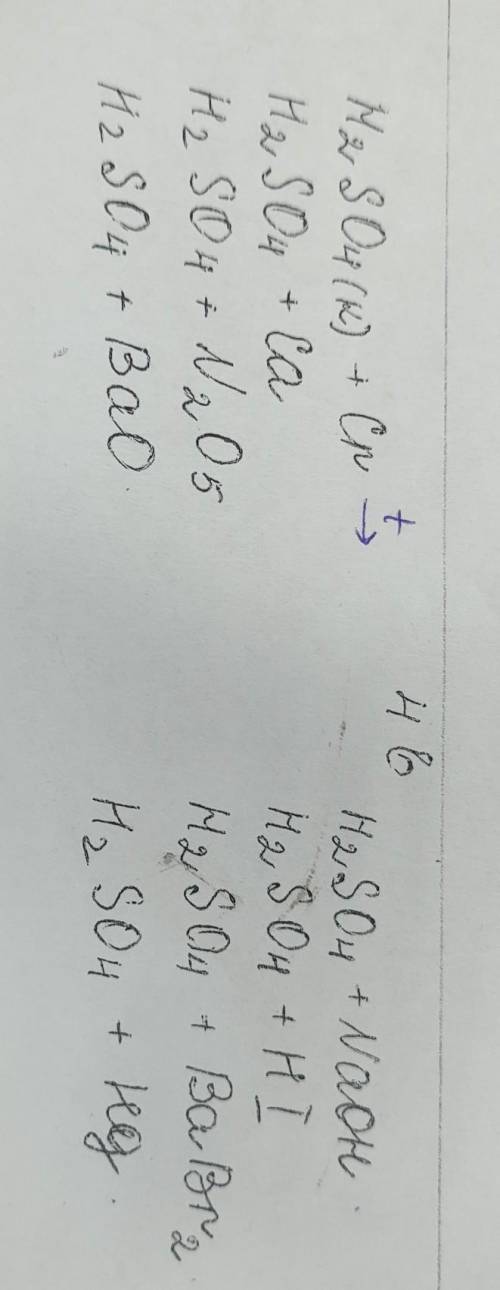 H₂SO₄(к) + Cr →ᵗ
H₂SO₄ + Ca
H₂SO₄ + N₂O₅
H₂SO₄ + BaO.
4 в
H₂SO₄ + NaOH.
H₂SO₄ + HI
H₂SO₄ + BaBr₂.
H₂SO₄ + Hg.